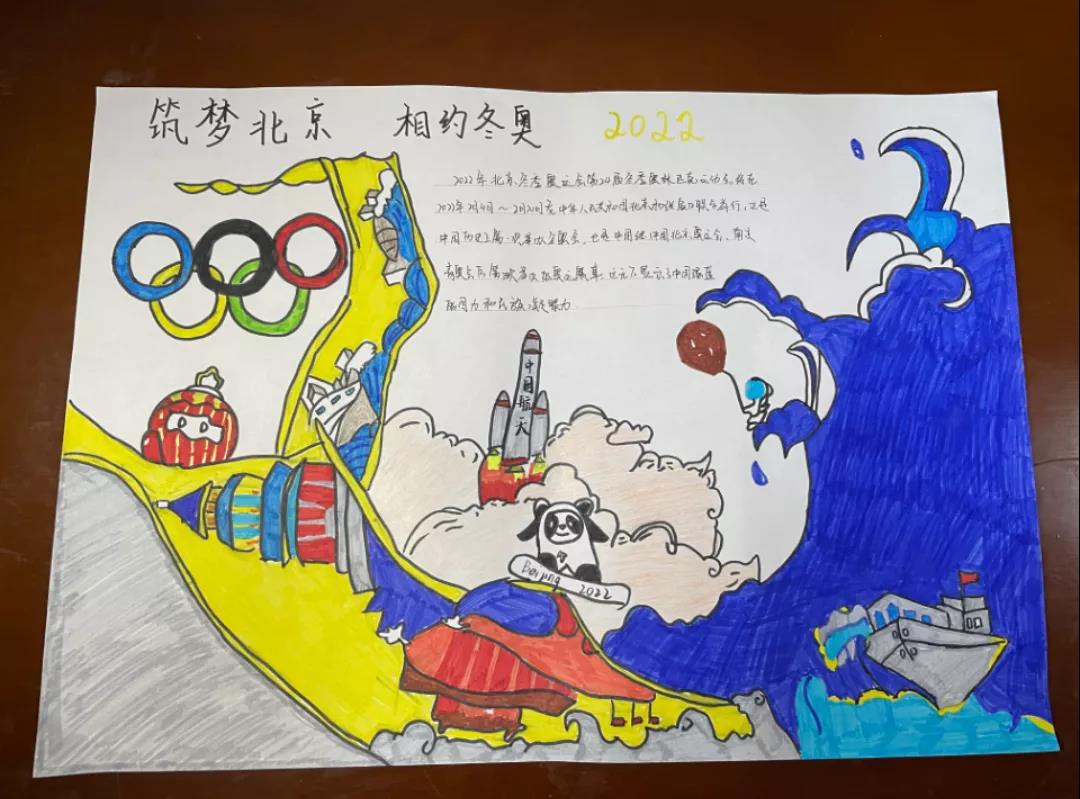 筑梦北京 相约冬奥 2022
2022年北京冬季奥运会第24届冬季奥林匹克运动会,将在
2022年2月4日～2月20日在中华人民共和国北京和张家口联合举行,这是
中国历史上第一次举办冬奥会,也是中国继中国北京奥运会、南京
青奥会后第三次举办奥运赛事,这无不显示了中国强盛
的国力和民族凝聚力
中国航天
Beijing 2022